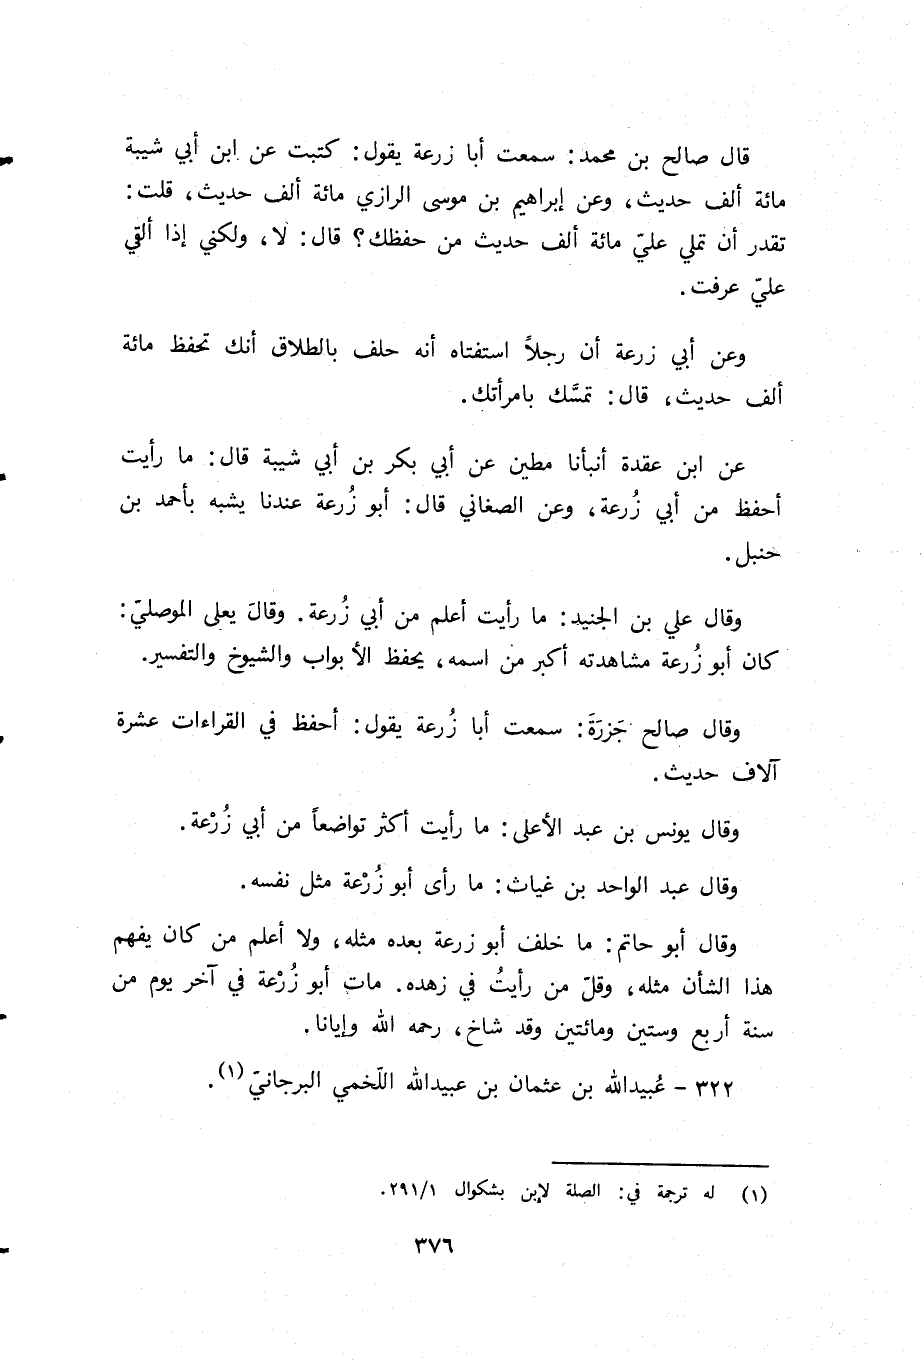 قال صالح بن محمد: سمعت أبا زرعة يقول: كتبت عن ابن أبي شيبة
مائة ألف حديث، وعن إبراهيم بن موسى الرازي مائة ألف حديث، قلت:
تقدر أن تملي عليّ مائة ألف حديث من حفظك؟ قال: لا، ولكني إذا ألقي
عليّ عرفت.
وعن أبي زرعة أن رجلاً استفتاه أنه حلف بالطلاق أنك تحفظ مائة
ألف حديث، قال: تمسَّك بامرأتك.
عن ابن عقدة أنبأنا مطين عن أبي بكر بن أبي شيبة قال: ما رأيت
أحفظ من أبي زُرعة، وعن الصغاني قال: أبو زُرعة عندنا يشبه بأحمد بن
حنبل.
وقال علي بن الجنيد: ما رأيت أعلم من أبي زُرعة. وقالَ يعلى الموصليّ:
كان أبو زُرعة مشاهدته أكبر من اسمه، يحفظ الأبواب والشيوخ والتفسير.
وقال صالح جَزرَةَ: سمعت أبا زُرعة يقول: أحفظ في القراءات عشرة
آلاف حديث.
وقال يونس بن عبد الأعلى: ما رأيت أكثر تواضعاً من أبي زُرْعة.
وقال عبد الواحد بن غياث: ما رأى أبو زُرْعة مثل نفسه.
وقال أبو حاتم: ما خلف أبو زرعة بعده مثله، ولا أعلم من كان يفهم
هذا الشأن مثله، وقلّ من رأيتُ في زهده. مات أبو زُرْعة في آخر يوم من
سنة أربع وستين ومائتين وقد شاخ، رحمه الله وإيانا.
٣٢٢ - عُبيدالله بن عثمان بن عبيدالله اللّخمي البرجانيّ(١).
(١) له ترجمة في: الصلة لإبن بشكوال ٢٩١/١.
٣٧٦